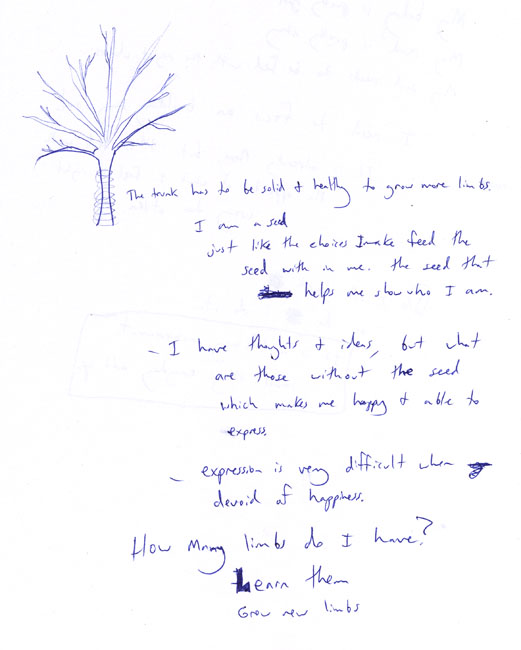 The trunk has to be solid & healthy to grow more limbs.
I am a seed
just like the choices I make feed the
seed with in me. the seed that
helps me show who I am.
- I have thoughts & ideas, but what
are those without the seed
which makes me happy & able to
express.
- expression is very difficult when
devoid of happiness.
How Many limbs do I have?
Learn them
Grow new limbs